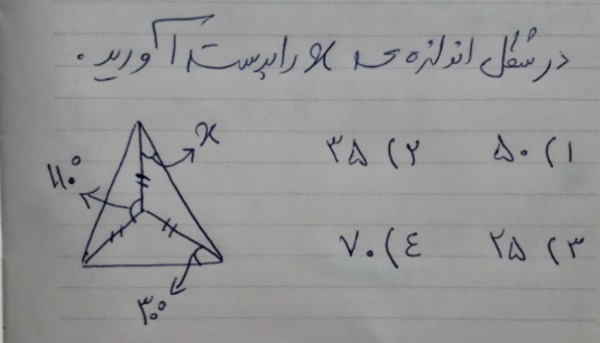 در شکل اندازه‌ی x را بدست آورید.
۱) ۵۰ ۲) ۳۵
x
۱۱۰°
۳) ۲۵ ۴) ۷۰
۳۰°